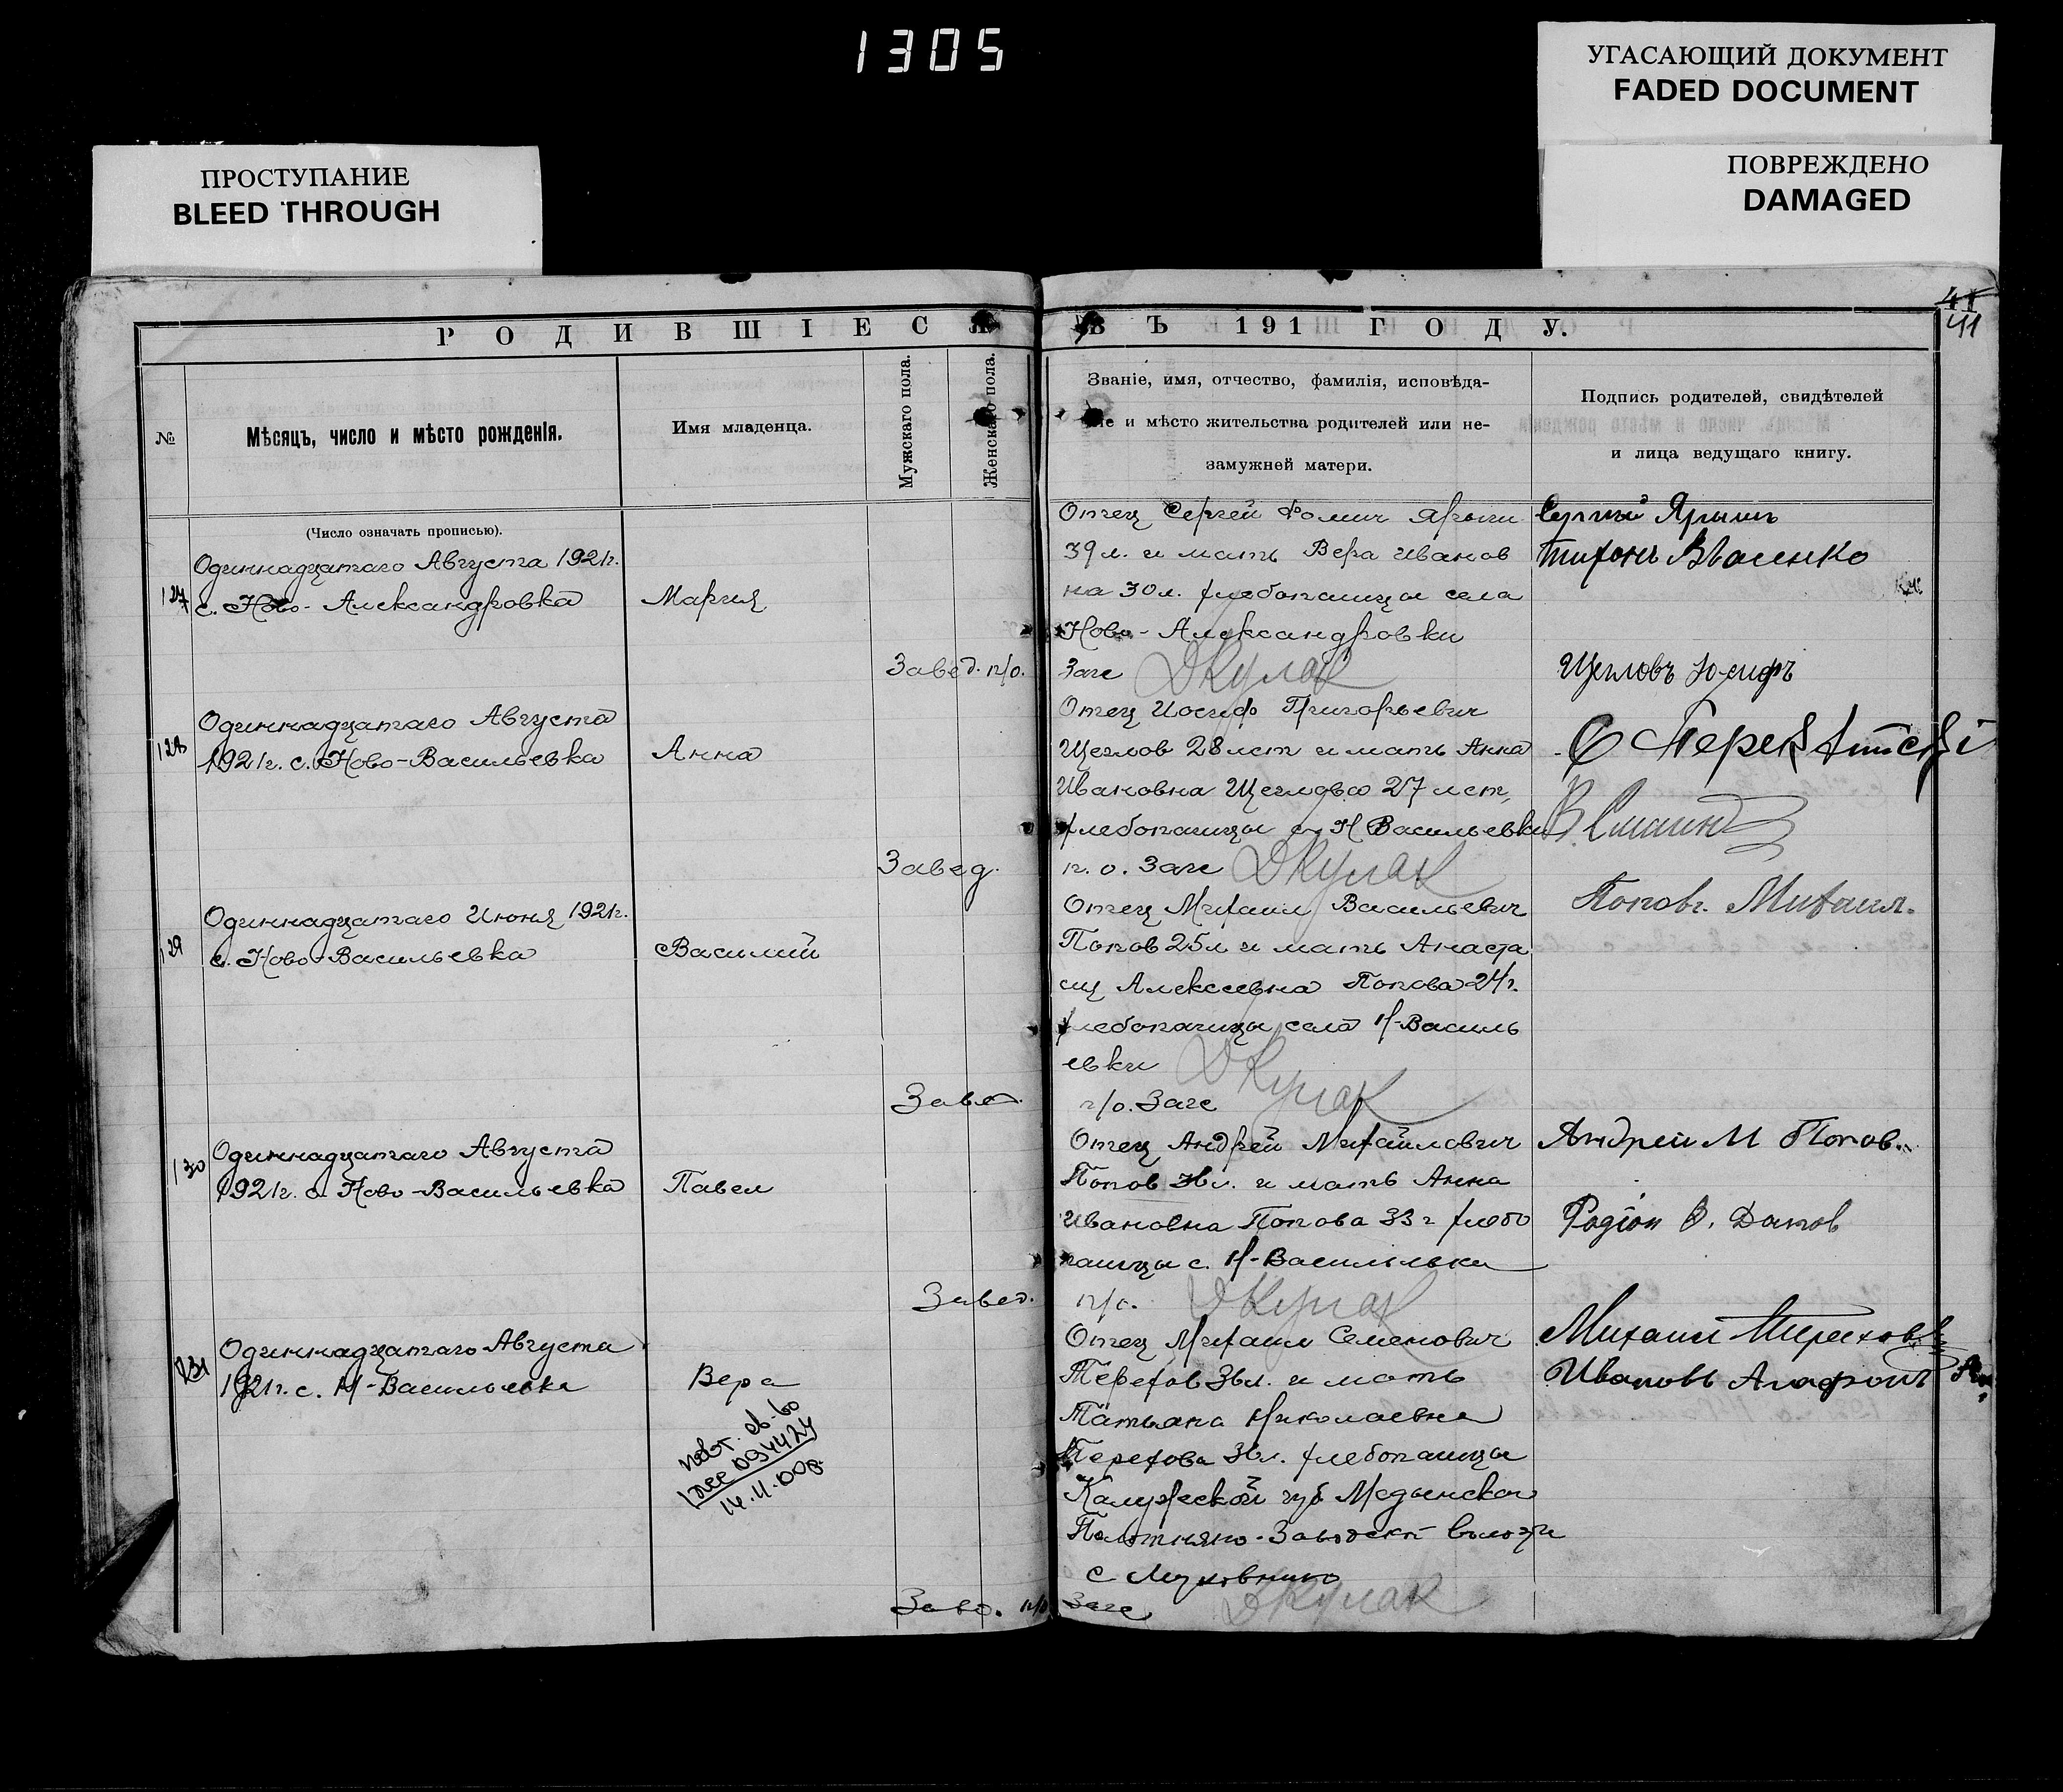 1305
УГАСАЮЩИЙ ДОКУМЕНТ
FADED DOCUMENT
ПРОСТУПАНИЕ
BLEED THROUGH
ПОВРЕЖДЕНО
DAMAGED
41
РОДИВШІЕСЯ ВЪ 191 ГОДУ.
№
Мѣсяцъ, число и мѣсто рожденія.
Имя младенца.
Мужскаго пола.
Женскаго пола.
Званіе, имя, отчество, фамилія, исповѣда-
и мѣсто жительства родителей или не-
замужней матери.
Подпись родителей, свидѣтелей
и лица ведущаго книгу.
(Число означать прописью).
127
Одиннадцатаго Августа 1921г.
с. Ново-Александровка
Мария
Отец Сергей Фомич Ярыш
39л. и мать Вера Иванов
на 30л. хлебопашцы села
Ново-Александровки
Завед. п/о. Загс ДКулак
Сергий Ярышъ
Тихонъ
128
Одиннадцатаго Августа
1921г. с. Ново-Васильевка
Анна
Отец Иосиф Григорьевич
Щеглов 28 лет и мать Анна
Ивановна Щеглова 27 лет,
хлебопашцы с. Н Васильевки
Завед. п. о. Загс ДКулак
Щегловъ
129
Одиннадцатаго Июня 1921г.
с. Ново-Васильевка
Василий
Отец Михаил Васильевич
Попов 25л и мать Анаста
сия Алексеевна Попова 24г.
хлебопашцы села Н-Василь
евки ДКулак
Завед. п/о. Загс
Поповъ. Михаил.
130
Одиннадцатаго Августа
1921г. с. Ново-Васильевка
Павел
Отец Андрей Михайлович
Попов л. и мать Анна
Ивановна Попова 33 г хлебо
пашцы с. Н-Васильевки
Завед. п/о. ДКулак
Андрей М Попов.
Родіон
131
Одиннадцатаго Августа
1921г. с. Н-Васильевка
Вера
повт. св-во
094424
14.11.00г.
Отец Михаил Семенович
Терехов 36л. и мать
Татьяна Николаевна
Терехова 36л. хлебопашцы
Калужеской губ Медынской
Полотняно-Заводской волости
с
Завед. п/о Загс ДКулак
Михаил Терехов
Ивановъ